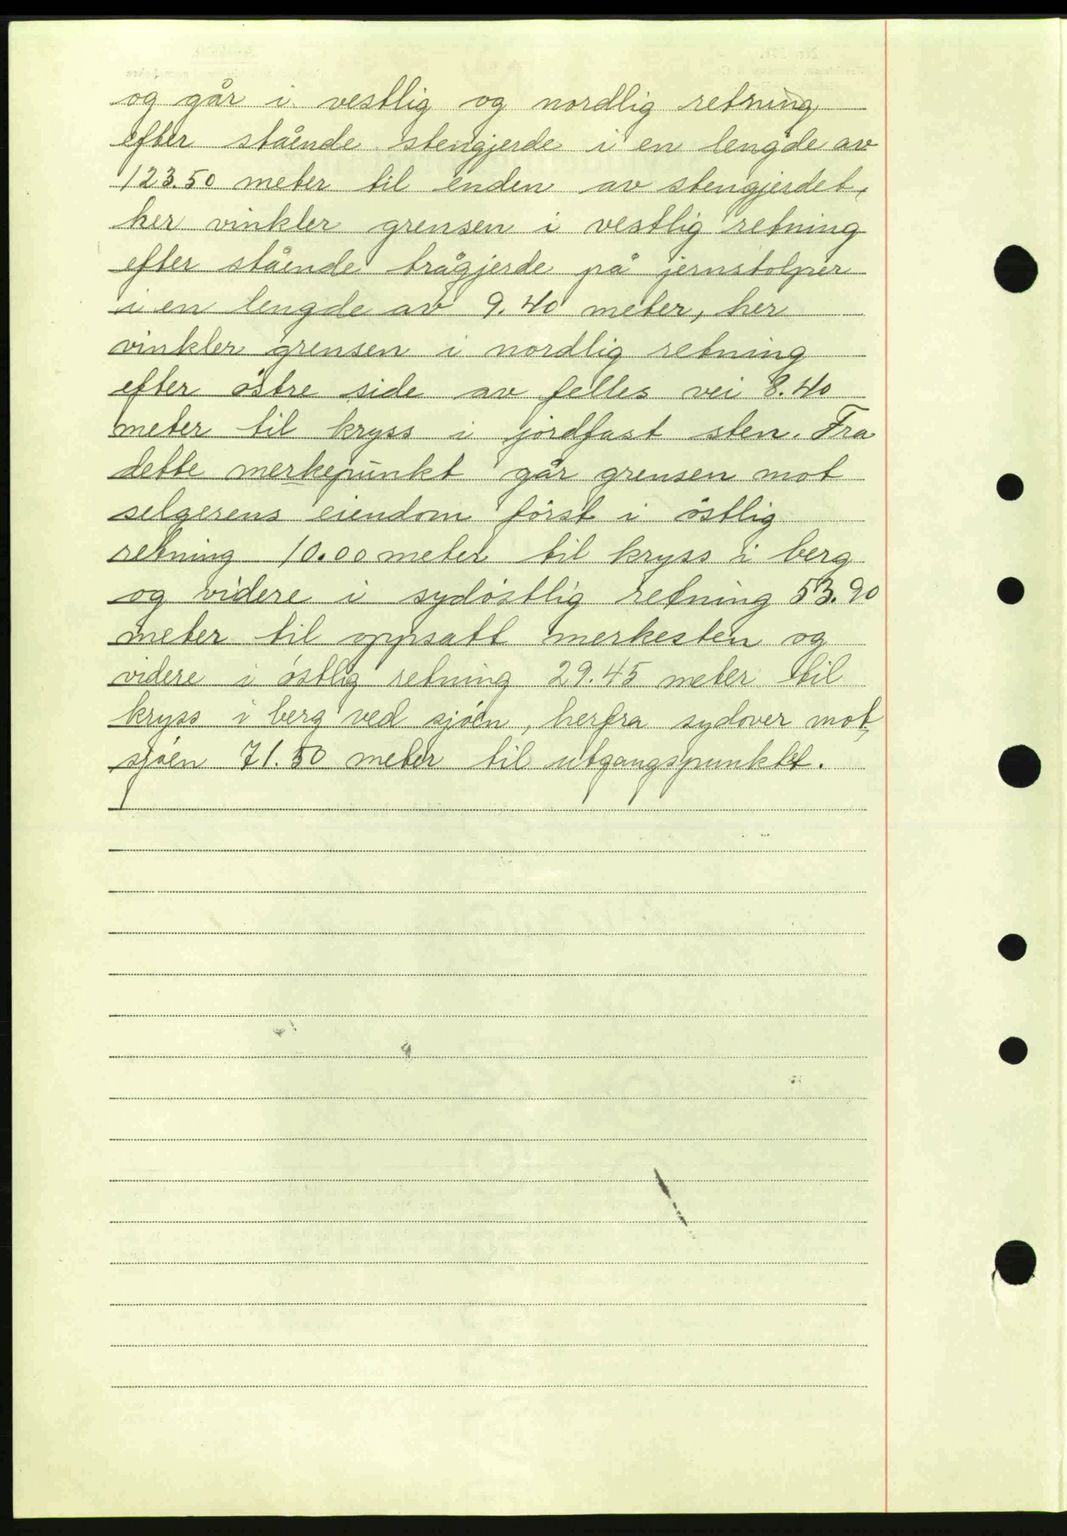 og går i vestlig og nordlig retning
efter stående stengjerde i en lengde av
123.50 meter til enden av stengjerdet,
her vinkler grensen i vestlig retning
efter stående trågjerde på jernstolper
i en lengde av 9.40 meter, her
vinkler grensen i nordlig retning
efter östre side av felles vei 8.40
meter til kryss i jordfast sten. Fra
dette merkepunkt går grensen mot
selgerens eiendom först i östlig
retning 10.00 meter til kryss i berg
og videre i sydöstlig retning 53.90
meter til oppsatt merkesten og
videre i östlig retning 29.45 meter til
kryss i berg ved sjöen, herfra sydover mot
sjöen 71.50 meter til utgangspunktet.